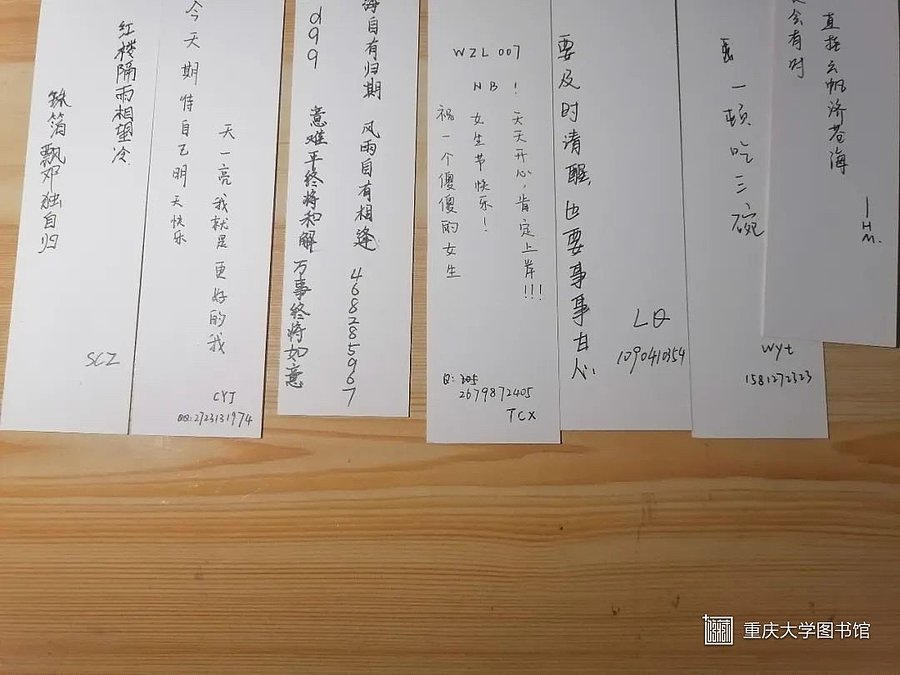 红楼隔雨相望冷
珠箔飘灯独自归
SCZ
今天期待自己明天快乐
天一亮我就是更好的我
CYJ
QQ:2723131974
d99
意难平终将和解 万事终将如意
海自有归期 风雨自有相逢
468285967
WZL 007
NB !
祝一个傻傻的女生
女生节快乐!
天天开心,肯定上岸!!!
Q: 205
2679872405
TCX
要及时清醒,也要事事甘心.
LQ
1090410354
一顿吃三碗
wyt
1581272323
会有时
直挂云帆济苍海
—HM.
重庆大学图书馆